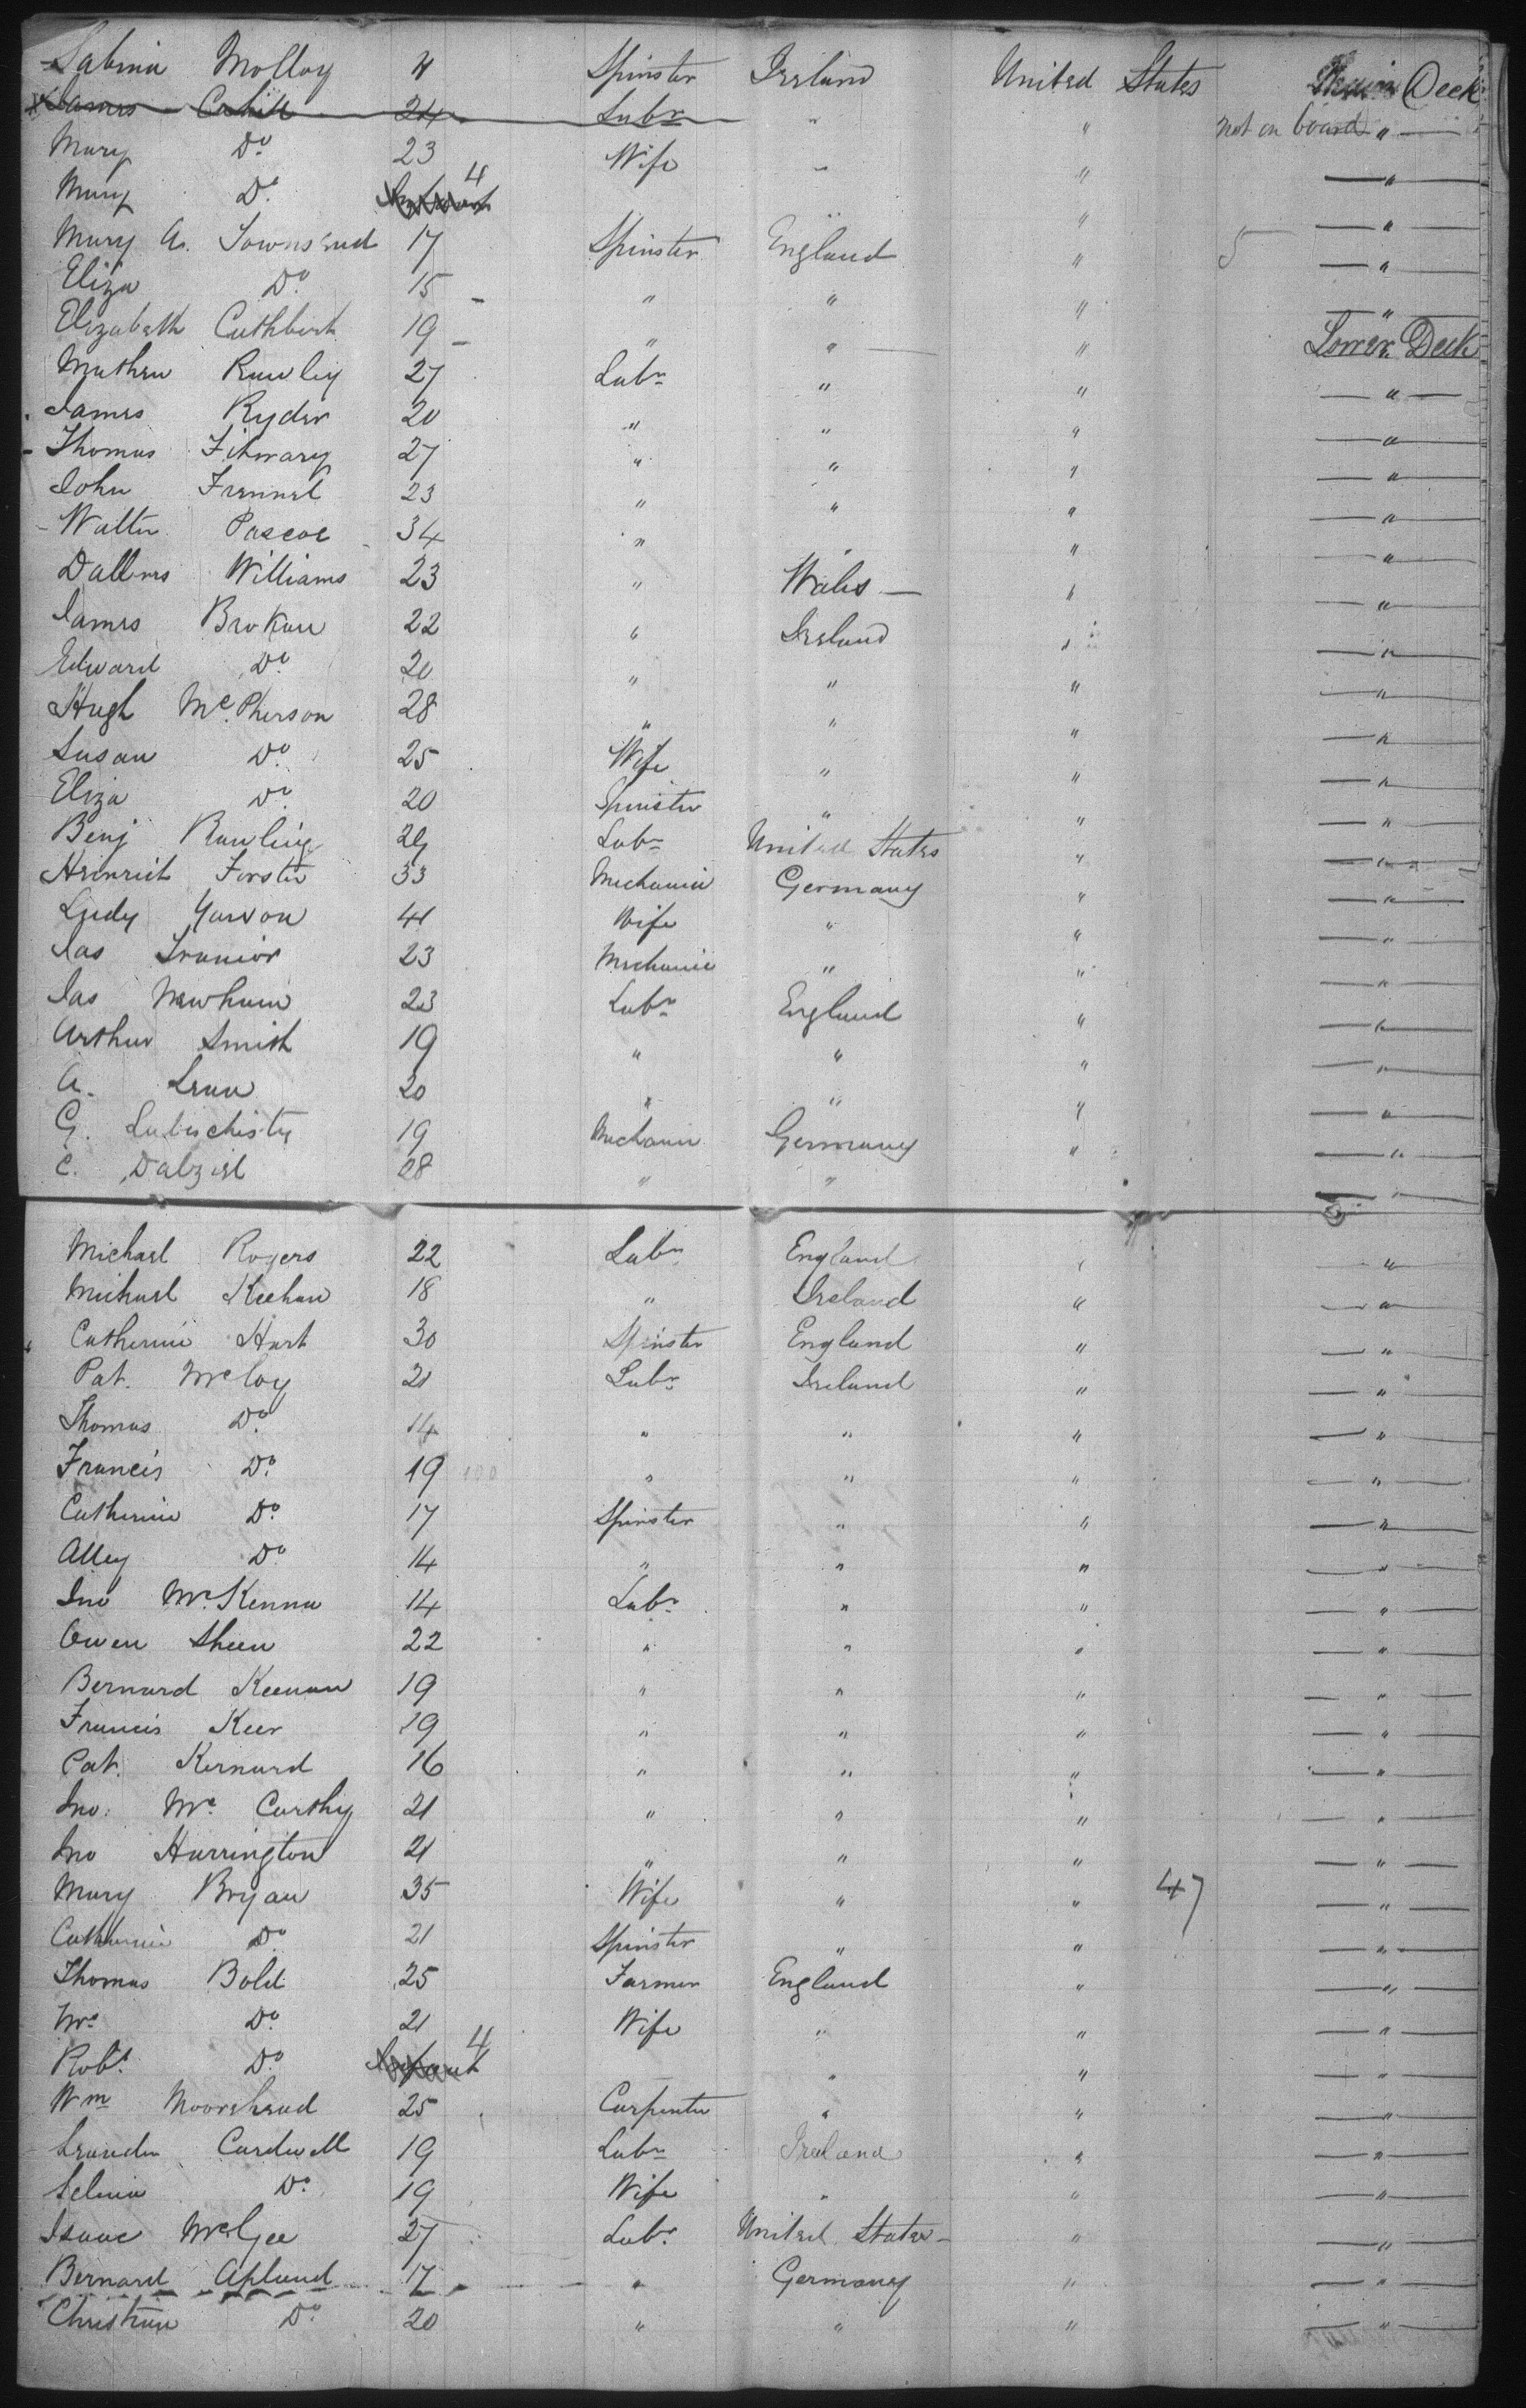 Sabina Molloy 11 Spinster Ireland United States Main Deck
James Cahill 24 Labr " " not on board "
Mary Do. 23 Wife " " "
Mary Do. Infant 4 " " "
Mary A. Townsend 17 Spinster England " 5 "
Eliza Do. 15 " " " "
Elizabeth Cuthbert 19 " " " Lower Deck
Mathew Rawley 27 Labr " " "
James Ryder 20 " " " "
Thomas 27 " " " "
John Frennel 23 " " " "
Walter Pascoe 34 " " " "
Williams 23 " Wales " "
James Brokaw 22 " Ireland " "
Edward Do. 20 " " " "
Hugh Mc.Pherson 28 " " " "
Susan Do. 25 Wife " " "
Eliza Do. 20 Spinster " " "
Benj Rawling 29 Labr United States " "
Heinrich Forster 33 Mechanic Germany " "
Yarvon 41 Wife " " "
Jas 23 Mechanic " " "
Jas Newham 23 Labr England " "
Arthur Smith 19 " " " "
A. 20 " " " "
G. 19 Mechanic Germany " "
C. Dalziel 28 " " " "
Michael Rogers 22 Labr England " "
Michael Keehan 18 " Ireland " "
Catherine Hart 30 Spinster England " "
Pat. McCoy 21 Labr Ireland " "
Thomas Do. 14 " " " "
Francis Do. 19 " " " "
Catherine Do. 17 Spinster " " "
Alley Do. 14 " " " "
Jno McKenna 14 Labr " " "
Owen Sheen 22 " " " "
Bernard Keenan 19 " " " "
Francis Keer 19 " " " "
Pat. Kernard 16 " " " "
Jno. Mc Carthy 21 " " " "
Jno Harrington 21 " " " "
Mary Bryan 35 Wife " " 47 "
Catherine Do. 21 Spinster " " "
Thomas Bold 25 Farmer England " "
Mrs Do. 21 Wife " " "
Robt. Do. Infant 4 " " "
Wm Moorehead 25 Carpenter " " "
Cardwell 19 Labr Ireland " "
Selina Do. 19 Wife " " "
Isaac McGee 27 Labr. United States " "
Bernard Aplund 17 " Germany " "
Christian Do. 20 " " " "